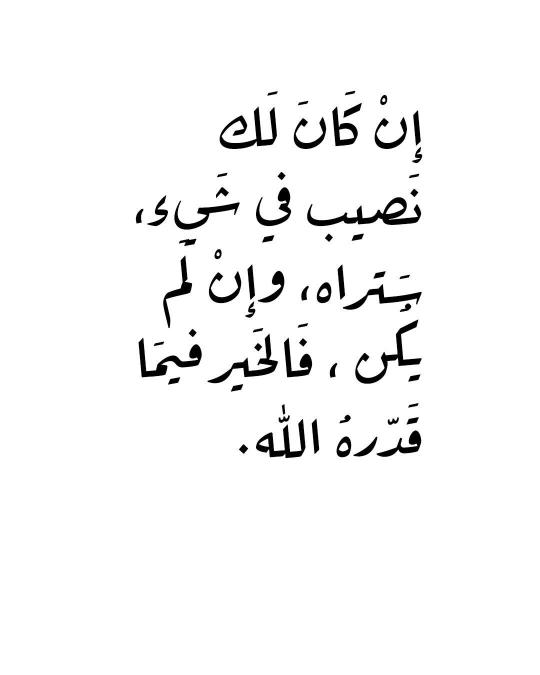 إِنْ كَانَ لَك
نَصيب في شَيء،
سَتراه، وإِنْ لَم
يكُن ، فَالخَير فيمَا
قَدّرهُ الله.